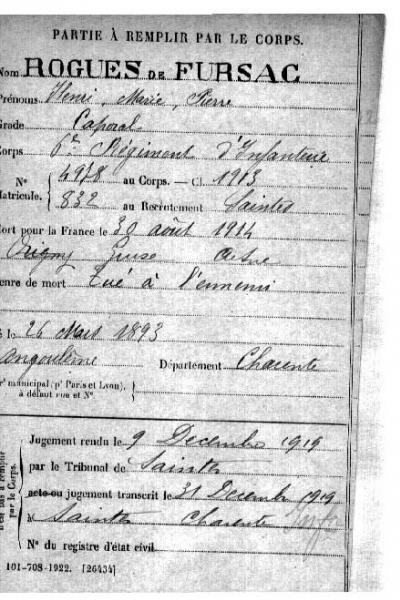 PARTIE À REMPLIR PAR LE CORPS.
Nom ROGUES DE FURSAC
Prénoms Henri, Marie, Pierre
Grade Caporal
Corps 6e Régiment d'Infanterie
N° 4978 au Corps. — Cl. 1913
Matricule. 832 au Recrutement Saintes
Mort pour la France le 30 août 1914
Origny Aisne
Genre de mort Tué à l'ennemi
Né le 26 Mars 1893
Angoulême Département Charente
Arr' municipal (p' Paris et Lyon),
à défaut rue et N°.
Jugement rendu le 9 Decembre 1919
par le Tribunal de Saintes
acte ou jugement transcrit le 31 Decembre 1919
à Saintes Charente
N° du registre d'état civil
par le Corps.
101-708-1922. [26434]